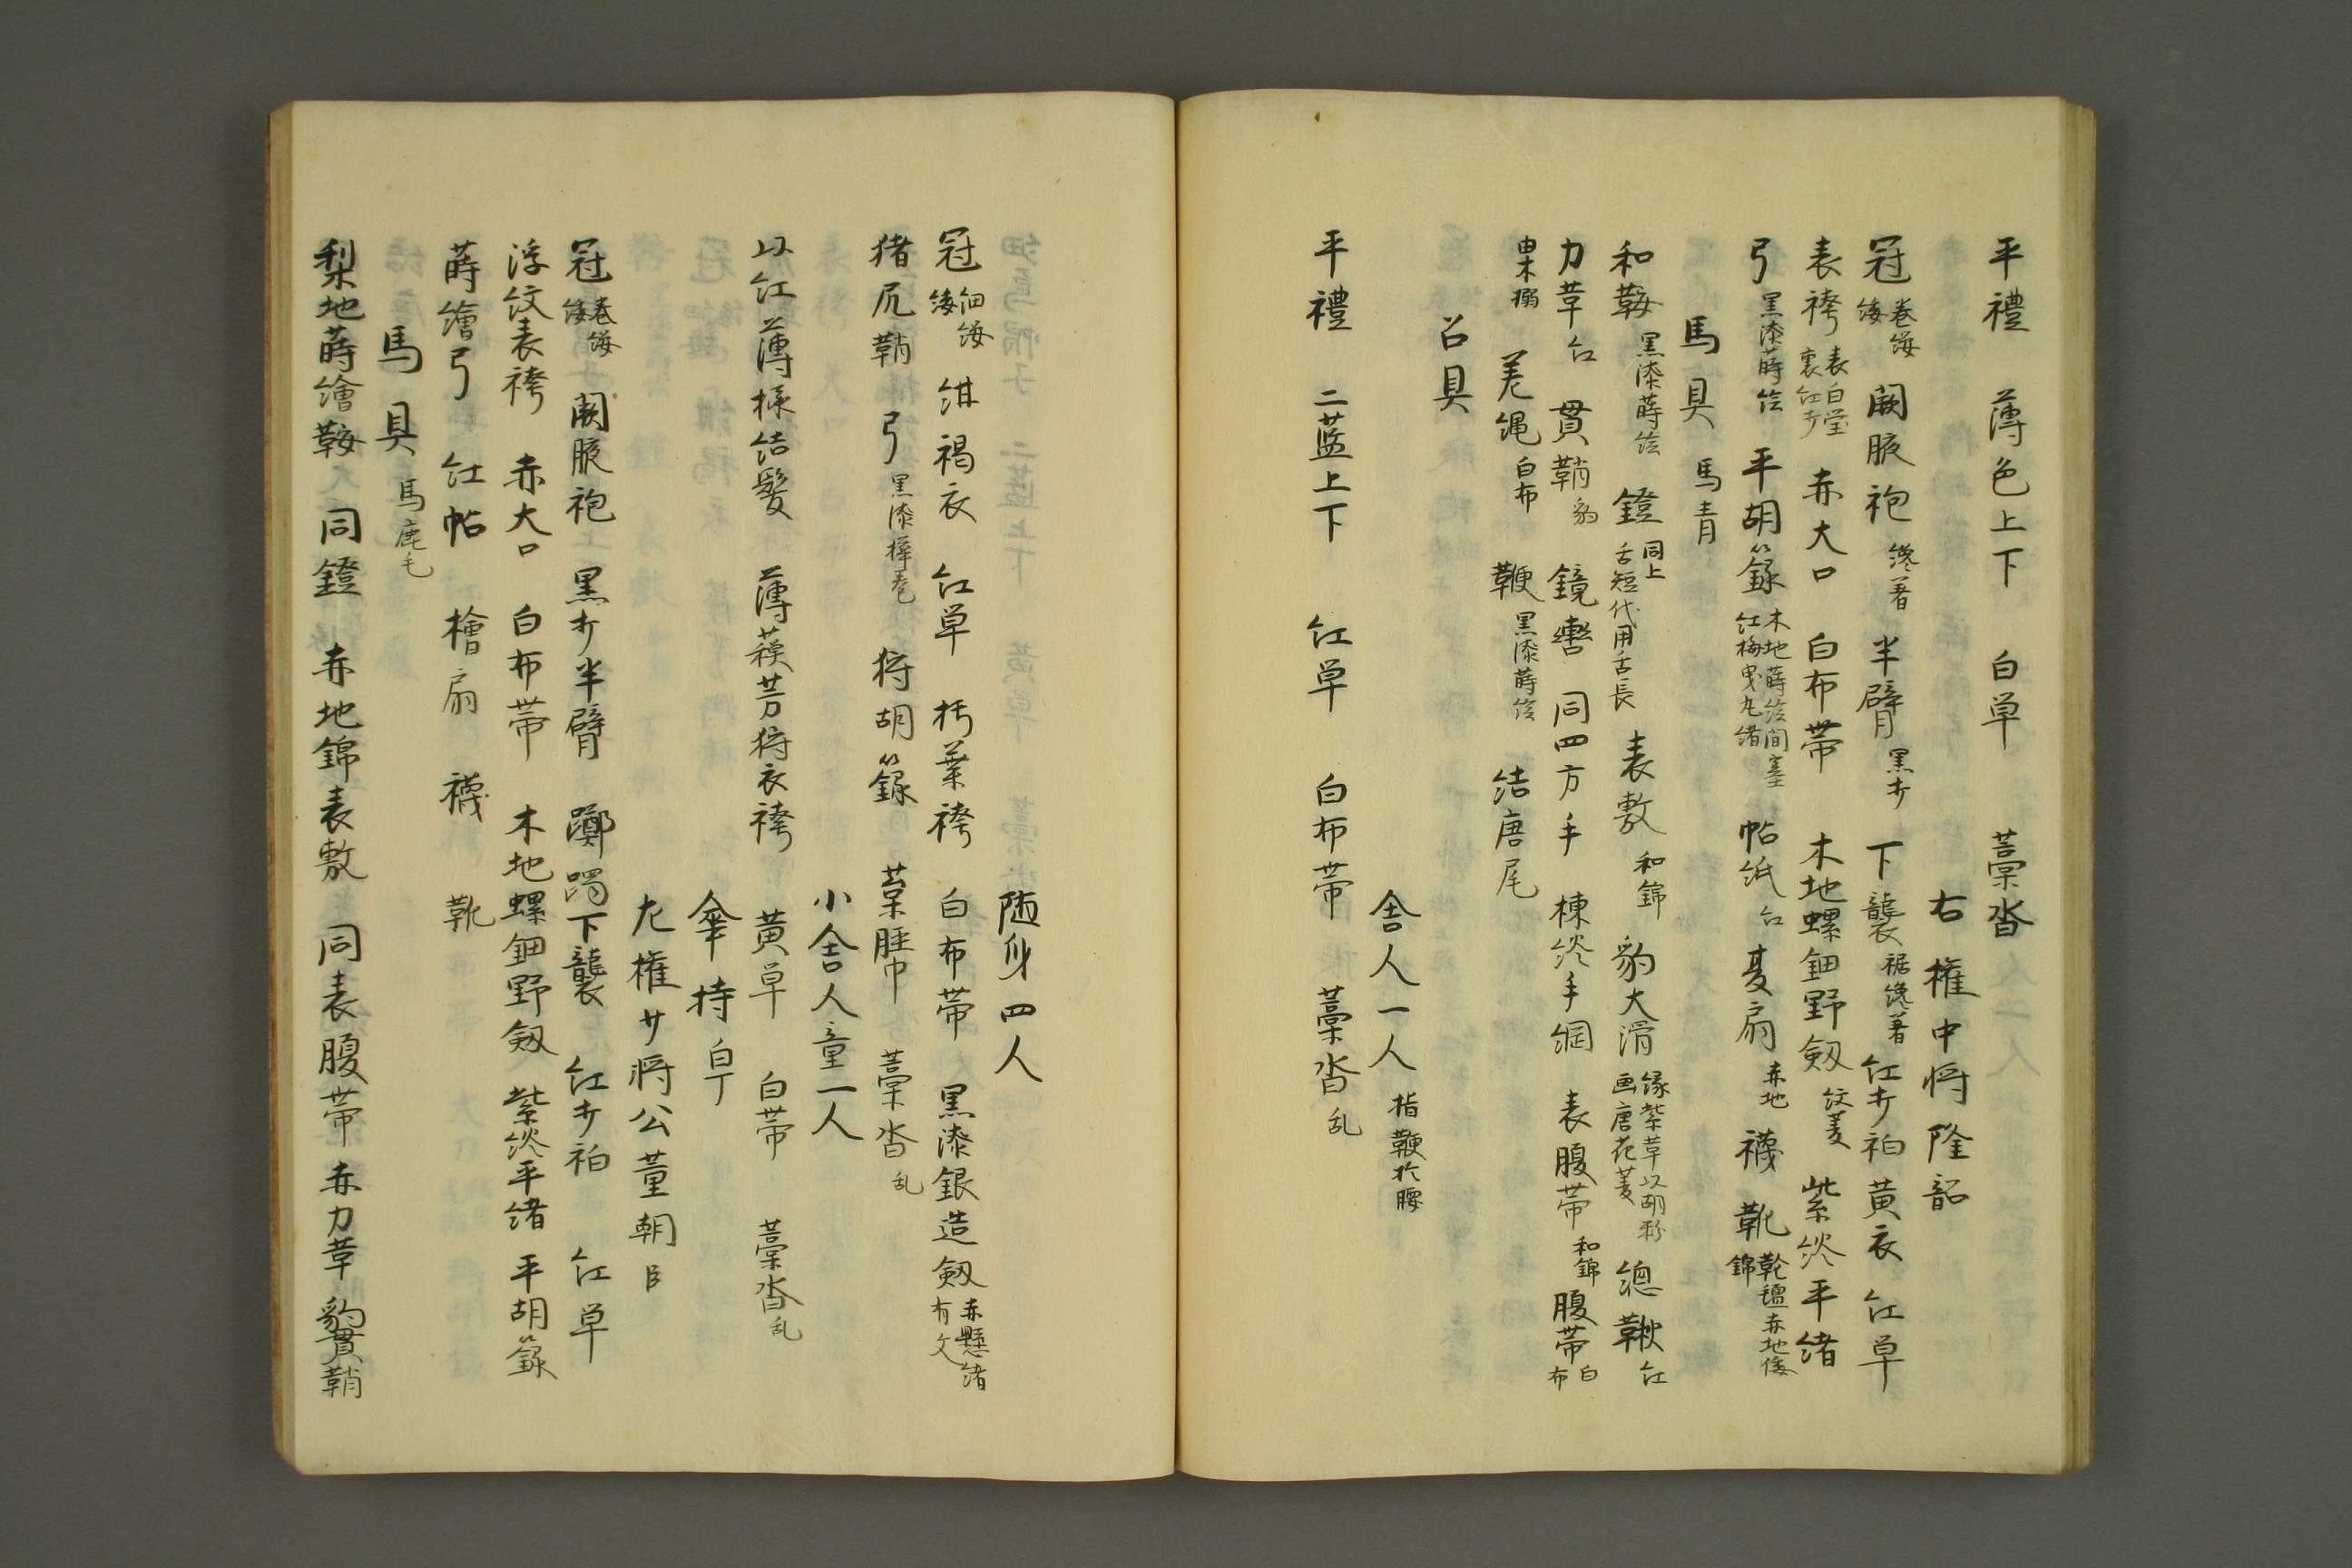 平禮 薄色上下 白単 藁沓
右権中将隆韶
冠 巻纓 緌 闕腋袍 纔著 半臂 黒打 下襲 裾纔著 紅打衵 黄衣 紅単
表袴 表白瑩 裏紅打 赤大口 白布帯 木地螺鈿野剱 紋菱 紫淡平緒
弓 黒漆蒔絵 平胡籙 木地蒔絵間塞 紅梅曳丸緒 帖紙 紅 夏扇 赤地 襪 靴 靴氈赤地倭 錦
馬具 馬青
和鞍 黒漆蒔絵 鐙 同上 舌短代用舌長 表敷 和錦 豹大滑 縁紫革以胡粉 画唐花菱 總鞦 紅
力革 紅 貫鞘 豹 鏡轡 同四方手 楝淡手綱 表腹帯 和錦 腹帯 白布
差縄 白布 鞭 黒漆蒔絵 結唐尾
召具
舎人一人 指鞭於腰
平禮 二藍上下 紅単 白布帯 藁沓 乱
随身四人
冠 細纓 緌 紺褐衣 紅単 朽葉袴 白布帯 黒漆銀造剱 赤懸緒 有文
猪尻鞘 弓 黒漆樺巻 狩胡籙 葉脛巾 藁沓 乱
小舎人童一人
以紅薄様結髪 薄蘓芳狩衣袴 黄単 白帯 藁沓 乱
傘持白丁
左権少将公董朝臣
冠 巻纓 緌 闕腋袍 黒打半臂 躑躅下襲 紅打衵 紅単
浮紋表袴 赤大口 白布帯 木地螺鈿野剱 紫淡平緒 平胡籙
蒔繪弓 紅帖 檜扇 襪 靴
馬具 馬鹿毛
梨地蒔繪鞍 同鐙 赤地錦表敷 同表腹帯 赤力革 豹貫鞘